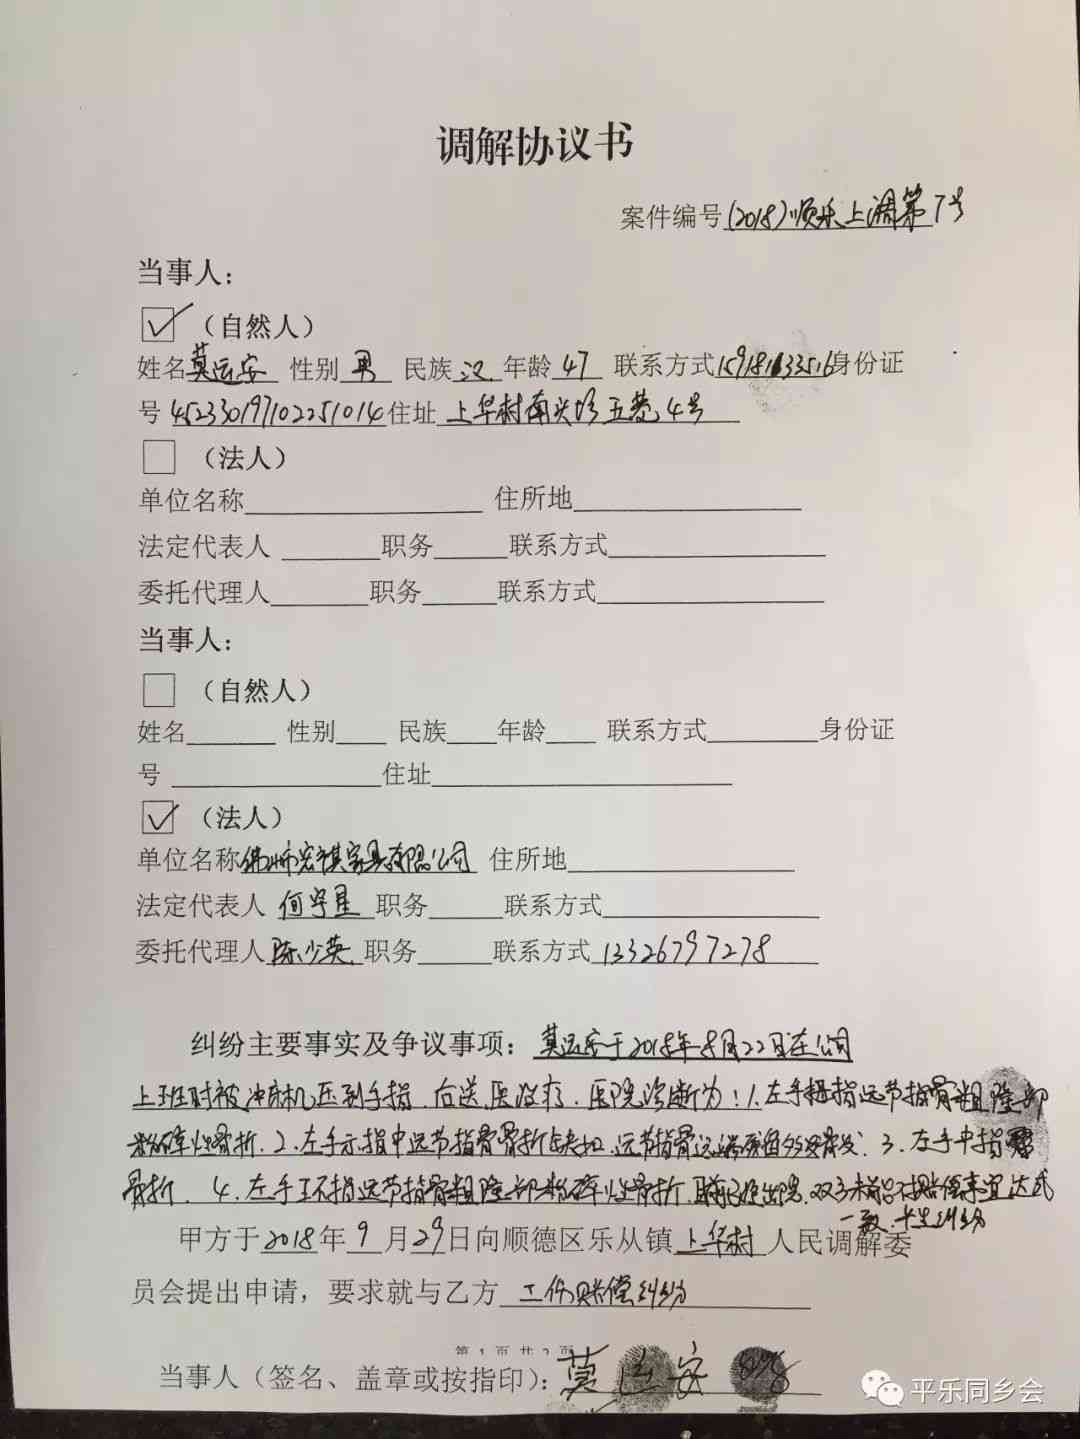 调解协议书
案件编号(2018)顺乐上调第7号
当事人：
（自然人）
姓名莫运安 性别男 民族汉 年龄47 联系方式15918133516身份证
号 452330197102251014 住址 上华村南兴坊五巷4号
（法人）
单位名称 住所地
法定代表人 职务 联系方式
委托代理人 职务 联系方式
当事人：
（自然人）
姓名 性别 民族 年龄 联系方式 身份证
号 住址
（法人）
单位名称佛山市宏祺家具有限公司 住所地
法定代表人 何宇星 职务 联系方式
委托代理人陈少英 职务 联系方式 13326797278
纠纷主要事实及争议事项：莫运安于2018年8月22日在公司
上班时被冲床机压到手指.后送医治疗.医院诊断为：1.左手拇指远节指骨粗隆部
粉碎性骨折.2.左手示指中远节指骨骨折缺损.远节指骨远端残留多发骨 3.左手中指
骨折.4.左手环指远节指骨粗隆部粉碎性骨折.出院.双方未能就赔偿事宜达成
一致.产生纠纷
甲方于2018年9月29日向顺德区乐从镇上华村人民调解委
员会提出申请，要求就与乙方 工伤赔偿纠纷
第 1 页 共 2 页
当事人（签名、盖章或按指印）：莫运安
平乐同乡会